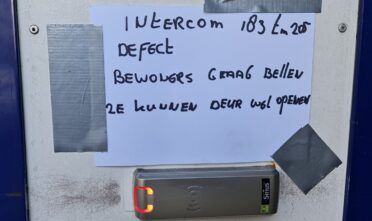 INTERCOM 183 t/m 205
DEFECT
BEWONERS GRAAG BELLEN
ZE KUNNEN DEUR WEL OPENEN
Sirius